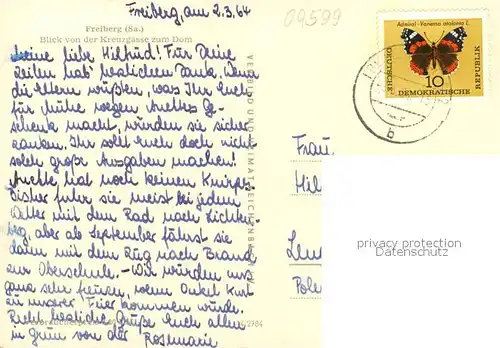 Freiberg, am 2.3.64
09599
Freiberg (Sa.)
Blick von der Kreuzgasse zum Dom
Meine liebe Hiltrud! Für Deine
Zeilen hab' herzlichen Dank. Wenn
die Eltern wüßten, was Ihr Euch
für Mühe wegen Anettes Ge-
schenk macht, würden sie sicher
zanken. Ihr sollt Euch doch nicht
solch große Ausgaben machen!
Anette hat noch keinen Knirps.
Bisher fuhr sie meist bei jedem
Wetter mit dem Rad nach Lichten-
berg, aber ab September fährt sie
dann mit dem Zug nach Brand
zur Oberschule. – Wir würden uns
ganz sehr freuen, wenn Onkel Kurt
zu unserer Feier kommen würde.
Recht herzliche Grüße Euch allen
in Grün von der Rosmarie
VERLAG BILD UND HEIMAT REICHENBACH
2784
Admiral - Vanessa atalanta L.
DEUTSCHE
10
DEMOKRATISCHE
REPUBLIK
b
Frau
Hil
privacy protection
Datenschutz